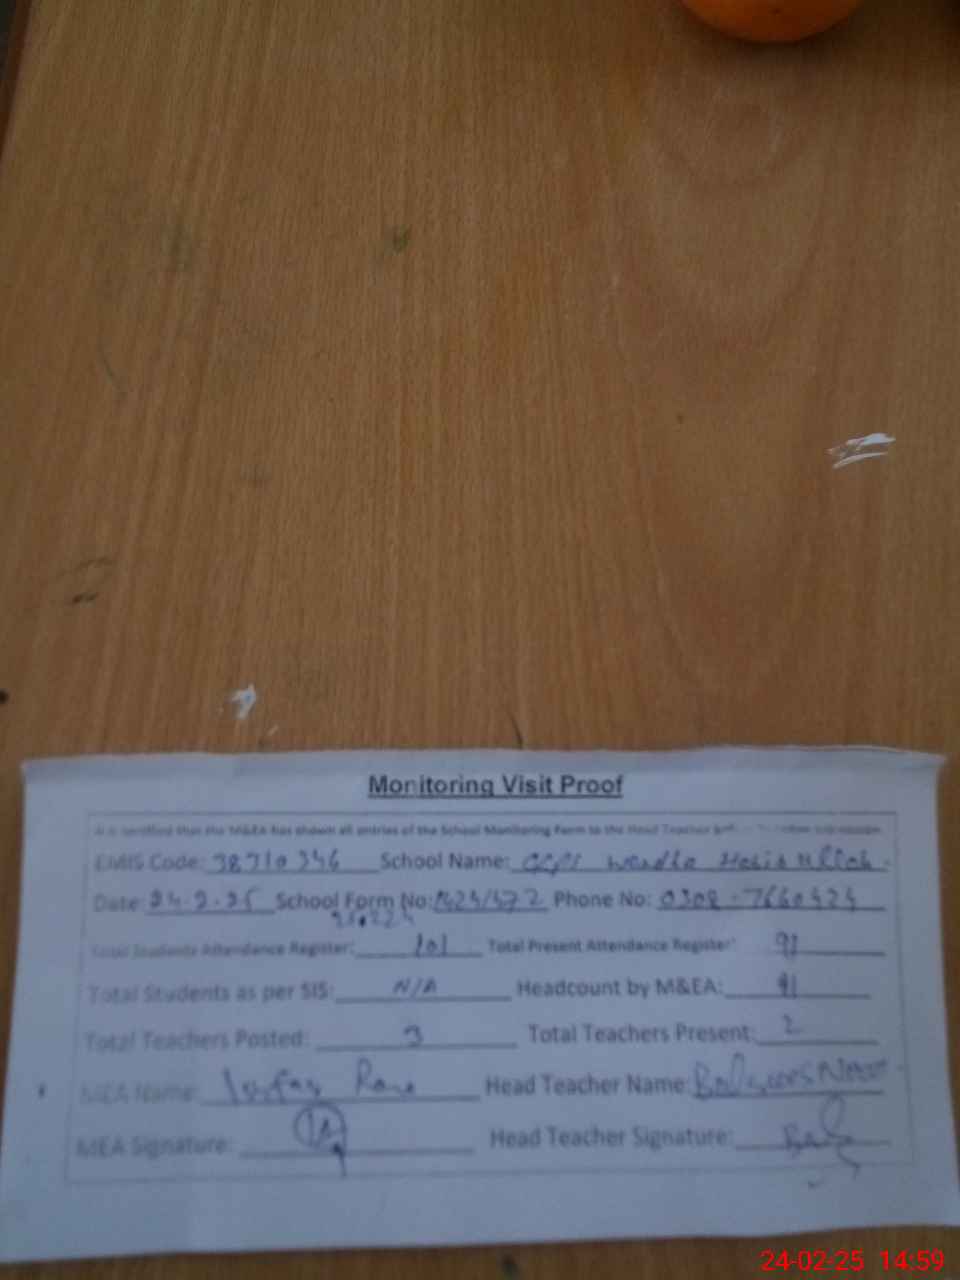 Monitoring Visit Proof
It is certified that the M&EA has shown all entries of the School Monitoring Form to the Head Teacher
EMIS Code: 38710346 School Name: GGPS Wandla Habib Ullah
Date: 24.2.25 School Form No: 1424/472 Phone No: 0308-7660424
Total Students Attendance Register: 101 Total Present Attendance Register: 91
Total Students as per SIS: N/A Headcount by M&EA: 91
Total Teachers Posted: 3 Total Teachers Present: 2
MEA Name: Head Teacher Name:
MEA Signature: Head Teacher Signature:
24-02-25 14:59